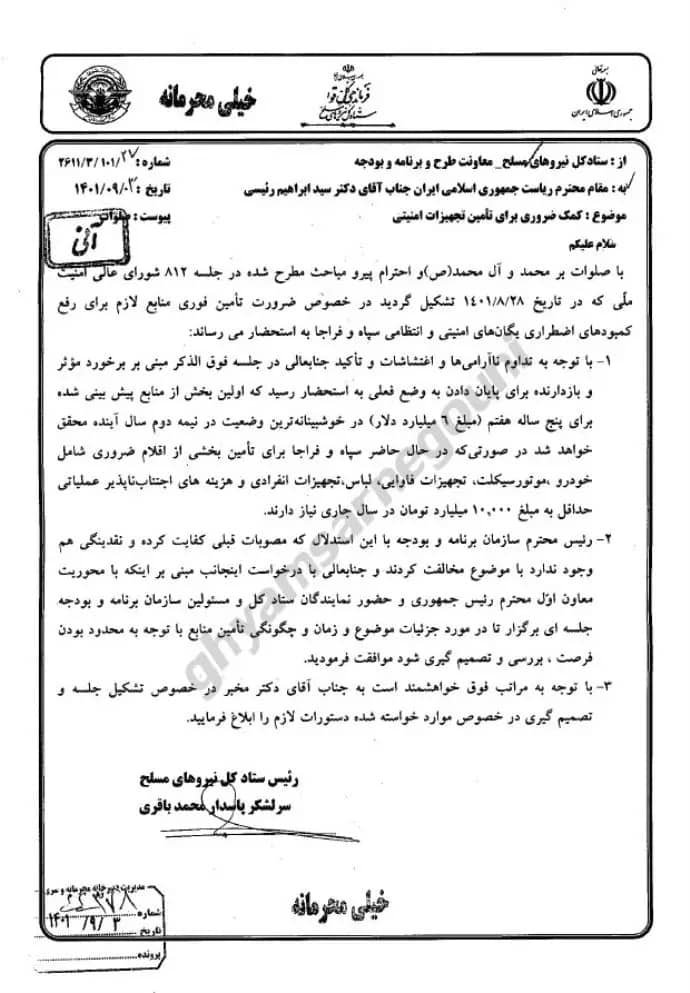 بسمه تعالی
جمهوری اسلامی ایران
فرماندهی کل قوا
ستاد کل نیروهای مسلح
خیلی محرمانه
از : ستادکل نیروهای مسلح_ معاونت طرح و برنامه و بودجه
شماره : ۲۶۱۱/۳/۱۰۱/۲۷
به : مقام محترم ریاست جمهوری اسلامی ایران جناب آقای دکتر سید ابراهیم رئیسی
تاریخ : ۱۴۰۱/۰۹/۰۳
موضوع : کمک ضروری برای تأمین تجهیزات امنیتی
پیوست : صلوات
آنی
سلام علیکم
با صلوات بر محمد و آل محمد(ص)و احترام پیرو مباحث مطرح شده در جلسه ۸۱۲ شورای عالی امنیت
ملّی که در تاریخ ۱۴۰۱/۸/۲۸ تشکیل گردید در خصوص ضرورت تأمین فوری منابع لازم برای رفع
کمبودهای اضطراری یگان‌های امنیتی و انتظامی سپاه و فراجا به استحضار می رساند:
۱- با توجه به تداوم ناآرامی‌ها و اغتشاشات و تأکید جنابعالی در جلسه فوق الذکر مبنی بر برخورد مؤثر
و بازدارنده برای پایان دادن به وضع فعلی به استحضار رسید که اولین بخش از منابع پیش بینی شده
برای پنج ساله هفتم (مبلغ ۶ میلیارد دلار) در خوشبینانه‌ترین وضعیت در نیمه دوم سال آینده محقق
خواهد شد در صورتی‌که در حال حاضر سپاه و فراجا برای تأمین بخشی از اقلام ضروری شامل
خودرو ،موتورسیکلت، تجهیزات فاوایی، لباس،تجهیزات انفرادی و هزینه های اجتناب‌ناپذیر عملیاتی
حداقل به مبلغ ۱۰,۰۰۰ میلیارد تومان در سال جاری نیاز دارند.
۲- رئیس محترم سازمان برنامه و بودجه با این استدلال که مصوبات قبلی کفایت کرده و نقدینگی هم
وجود ندارد با موضوع مخالفت کردند و جنابعالی با درخواست اینجانب مبنی بر اینکه با محوریت
معاون اوّل محترم رئیس جمهوری و حضور نمایندگان ستاد کل و مسئولین سازمان برنامه و بودجه
جلسه ای برگزار تا در مورد جزئیات موضوع و زمان و چگونگی تأمین منابع با توجه به محدود بودن
فرصت ، بررسی و تصمیم گیری شود موافقت فرمودید.
۳- با توجه به مراتب فوق خواهشمند است به جناب آقای دکتر مخبر در خصوص تشکیل جلسه و
تصمیم گیری در خصوص موارد خواسته شده دستورات لازم را ابلاغ فرمایید.
رئیس ستاد کل نیروهای مسلح
سرلشکر پاسدار محمد باقری
خیلی محرمانه
مدیریت دبیرخانه محرمانه و سری
شماره
تاریخ ۱۴۰۱/۹/۳
پرونده
ghyamsarnegouni